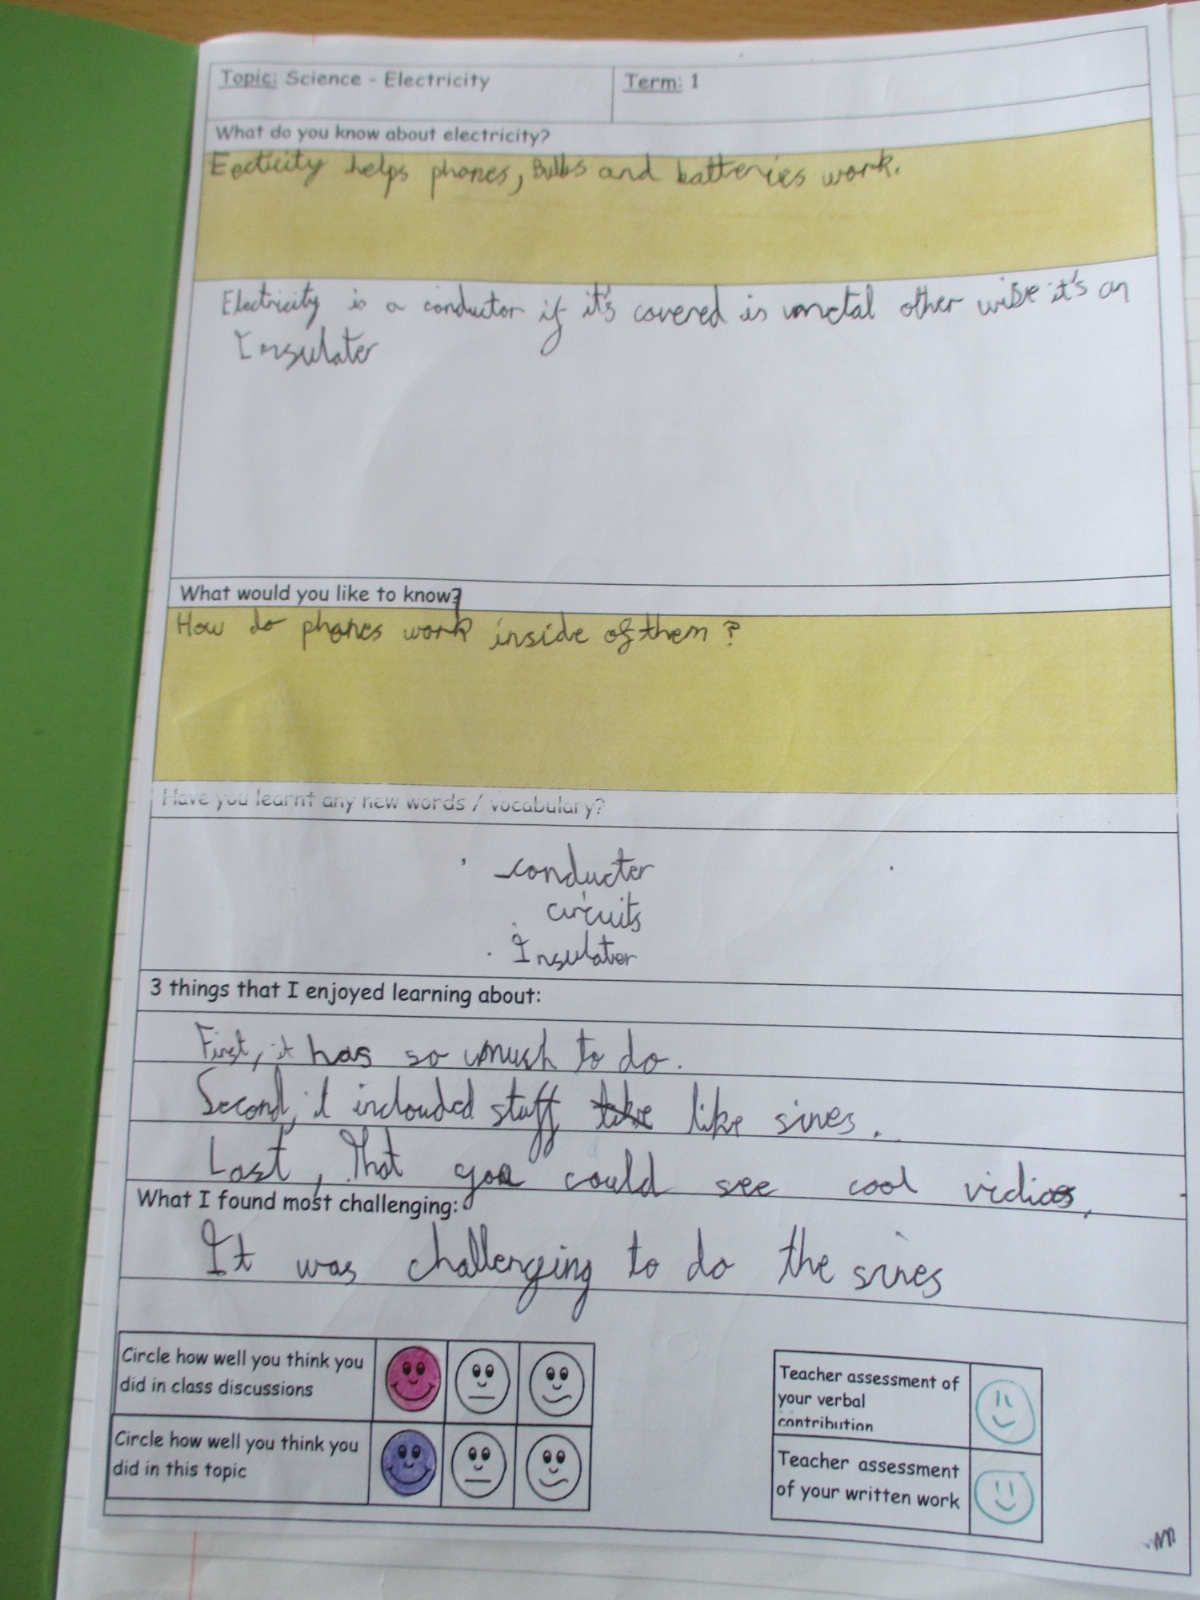 Topic: Science - Electricity
Term: 1
What do you know about electricity?
Eecticity helps phones, Bulbs and batteries work.
Electricity is a conductor if it's covered is metal other wise it's an
Insulater
What would you like to know?
How do phones work inside of them ?
Have you learnt any new words / vocabulary?
conducter
circuits
Insulater
3 things that I enjoyed learning about:
First, it has so much to do.
Second, it inclouded stuff like sines.
Last, That you could see cool vidios,
What I found most challenging:
It was challenging to do the sines
Circle how well you think you
did in class discussions
Circle how well you think you
did in this topic
Teacher assessment of
your verbal
contribution
Teacher assessment
of your written work